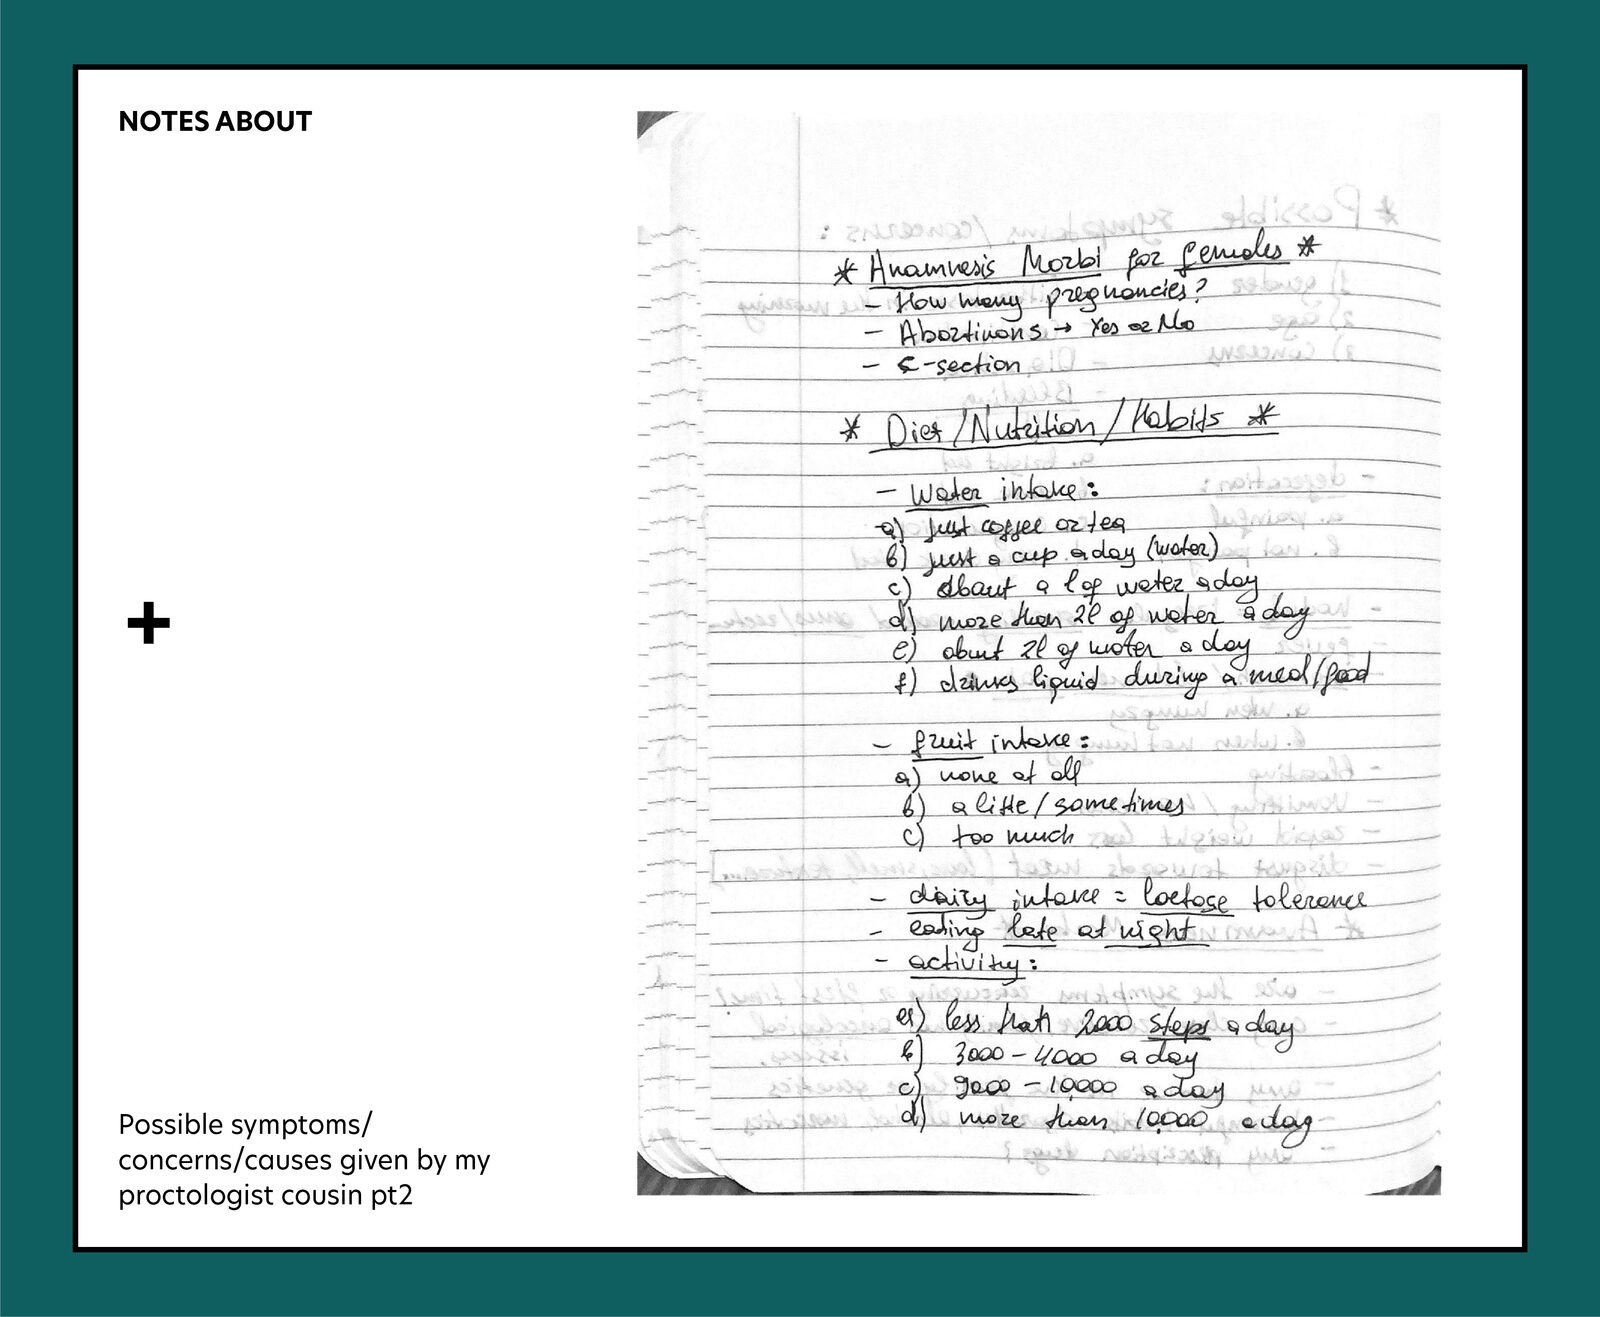 NOTES ABOUT
+
Possible symptoms/
concerns/causes given by my
proctologist cousin pt2
* Anamnesis Morbi for females *
- How many pregnancies?
- Abortivons → Yes or No
- C-section
* Diet/Nutrition/Habits *
- Water intake:
a) just coffee or tea
b) just a cup a day (water)
c) about a l of water a day
d) more than 2l of water a day
e) about 2l of water a day
f) drinks liquid during a meal/food
- fruit intake:
a) none at all
b) a litte/sometimes
c) too much
- dairy intake = lactose tolerance
- eating late at night
- activity:
a) less than 2000 steps a day
b) 3000-4000 a day
c) 9000-10,000 a day
d) more than 10,000 a day